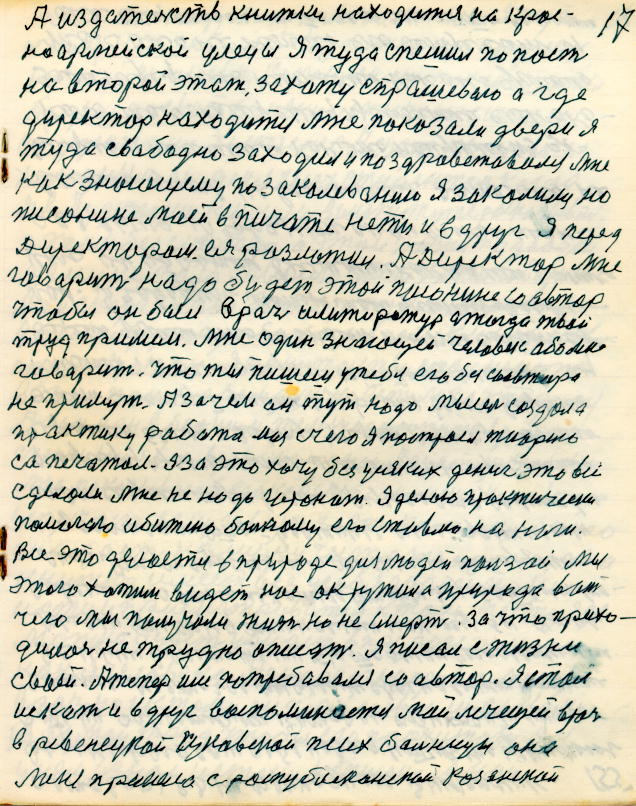 17
А издательств книжки находится на Крас-
ноармейской улецы Я туда спешил по пост
на второй этаж, захожу страшеваю а где
директор находится мне показали двери я
туда свабодно заходил и поздраветавался мне
как знающему по закалеванию Я закалилися но
писанине маей в пичате нету и вдруг Я перед
Директором ся разлажил. А Директор мне
говарит надо будет этой писонине соавтор
чтобы он был врач илитиратур а тогда твой
труд примем. Мне один знающей человек
говарит. что ты пишеш у тебя его без саавтара
не примут. А зачем он тут надо мысль создала
практику работа
са печатал. Я за это хочу без усяких дениг это всё
сделали мне не надо Я делаю практически
помогаю абижено бальному его ставлю на ноги.
Все это делается в природе для людей ползай Мы
этого хотим видет нас окружила природа вот
чего мы получали жизн но не смерт. За что прихо-
дилося не трудно описат. Я писал с жизни
сваей. А тепер им потребавался соавтор. Я стал
искат и вдруг воспоминается мой лечещей врач
в ревенецкой псих балницы она
меня приняла с республеканской Казанской